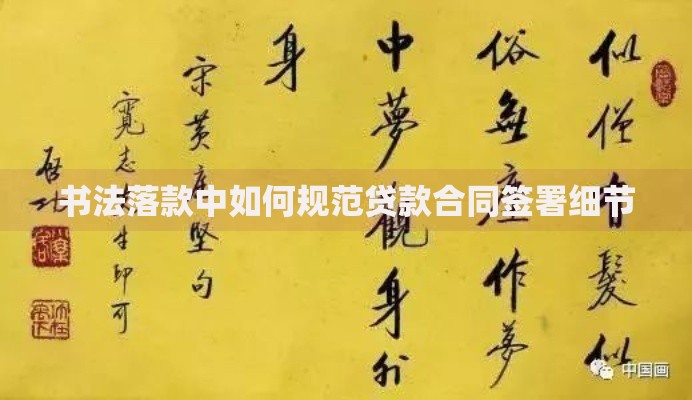 似僧有髮似
俗無塵作夢
中夢觀身外
身
宋黄庭堅句
寬志先生印可
启功
书法落款中如何规范贷款合同签署细节
中国画